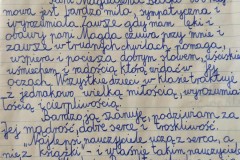 Pani Magdalena
mowa jest bardzo miła, sympatyczna i
wyrozumiała zawsze gdy mam lęki i
obawy pani Magda czuwa przy mnie i
zawsze w trudnych chwilach pomaga,
wspiera i pociesza dobrym słowem, wszystko
uśmiechem i radością którą widać w Jej
oczach. Wszystkie dzieci w klasie traktuje
z jednakową wielką miłością, wyrozumia
łością i cierpliwością.
Bardzo ją szanuję i podziwiam za
Jej mądrość, dobre serce i troskliwość.
"Najlepsi nauczyciele uczą z serca, a
nie z książki" - i właśnie takim nauczyciel